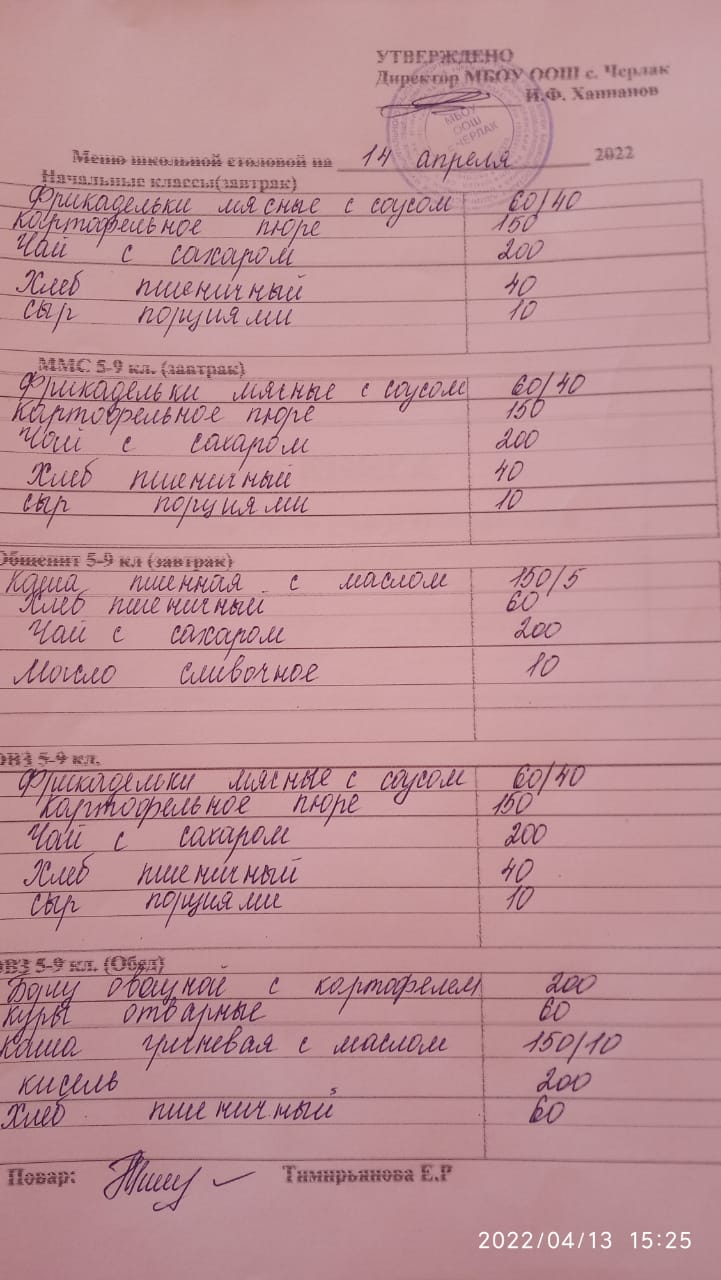 УТВЕРЖДЕНО
Директор МБОУ ООШ с. Черлак
И.Ф. Ханнанов
МБОУ
ООШ
с. ЧЕРЛАК
Меню школьной столовой на 14 апреля 2022
Начальные классы(завтрак)
Фрикадельки мясные с соусом 60/40
картофельное пюре 150
Чай с сахаром 200
Хлеб пшеничный 40
сыр порциями 10
ММС 5-9 кл. (завтрак)
Фрикадельки мясные с соусом 60/40
картофельное пюре 150
Чай с сахаром 200
Хлеб пшеничный 40
сыр порциями 10
Общепит 5-9 кл (завтрак)
Каша пшенная с маслом 150/5
Хлеб пшеничный 60
Чай с сахаром 200
Масло сливочное 10
ОВЗ 5-9 кл.
Фрикадельки мясные с соусом 60/40
картофельное пюре 150
Чай с сахаром 200
Хлеб пшеничный 40
сыр порциями 10
ОВЗ 5-9 кл. (Обед)
с картофелем 200
куры отварные 60
каша гречневая с маслом 150/10
кисель 200
Хлеб пшеничный 60
Повар: Тимирьянова Е.Р
2022/04/13 15:25